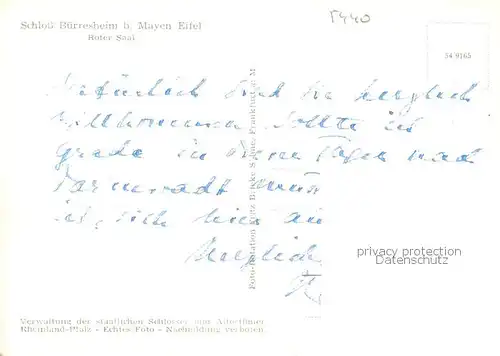 Schloß Bürresheim b. Mayen Eifel
Roter Saal
5440
54 9165
Natürlich sind Sie herzlich
willkommen. Sollte ich
grade in diesen Tagen nach
Darmstadt
ich
Herzlich
Foto-Rotation Fritz Frankfurt a. M.
privacy protection
Datenschutz
Verwaltung der staatlichen Schlösser und Altertümer
Rheinland-Pfalz - Echtes Foto - Nachbildung verboten.